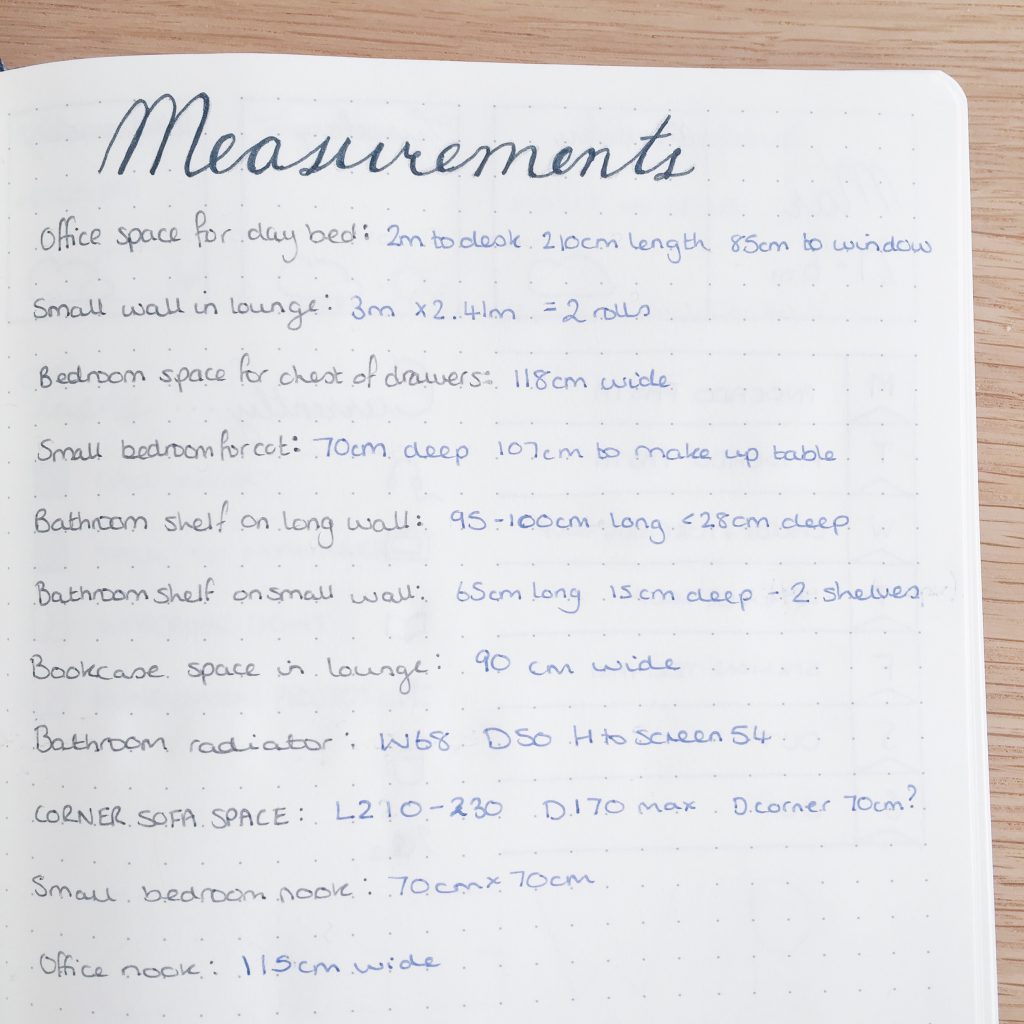 Measurements
Office space for day bed: 2m to desk 210cm length 85cm to window
Small wall in lounge: 3m x 2.41m = 2 rolls
Bedroom space for chest of drawers: 118cm wide
Small bedroom for cot: 70cm deep 107cm to make up table
Bathroom shelf on long wall: 95-100cm long <28cm deep
Bathroom shelf on small wall: 65cm long 15cm deep - 2 shelves
Bookcase space in lounge: 90 cm wide
Bathroom radiator: W68 D50 H to screen 54
CORNER SOFA SPACE: L210-230 D.170 max D.corner 70cm?
Small bedroom nook: 70cm x 70cm
Office nook: 115cm wide